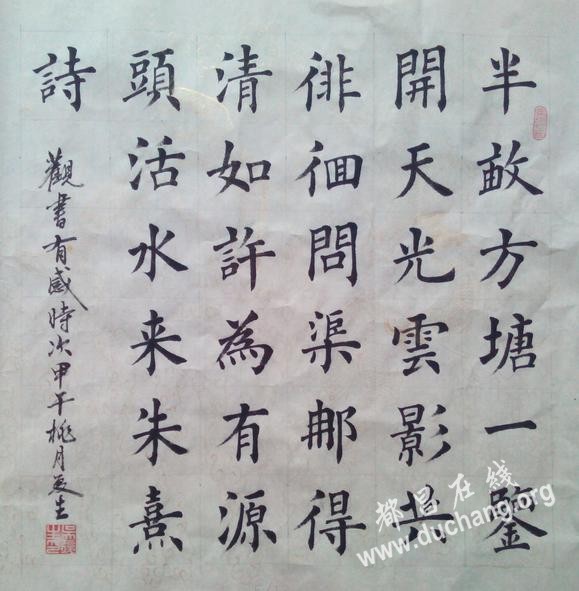 半畝方塘一鑒
開天光雲影共
徘徊問渠那得
清如許為有源
頭活水来朱熹
詩
觀書有感時次甲午桃月
生
都昌在线
www.duchang.org